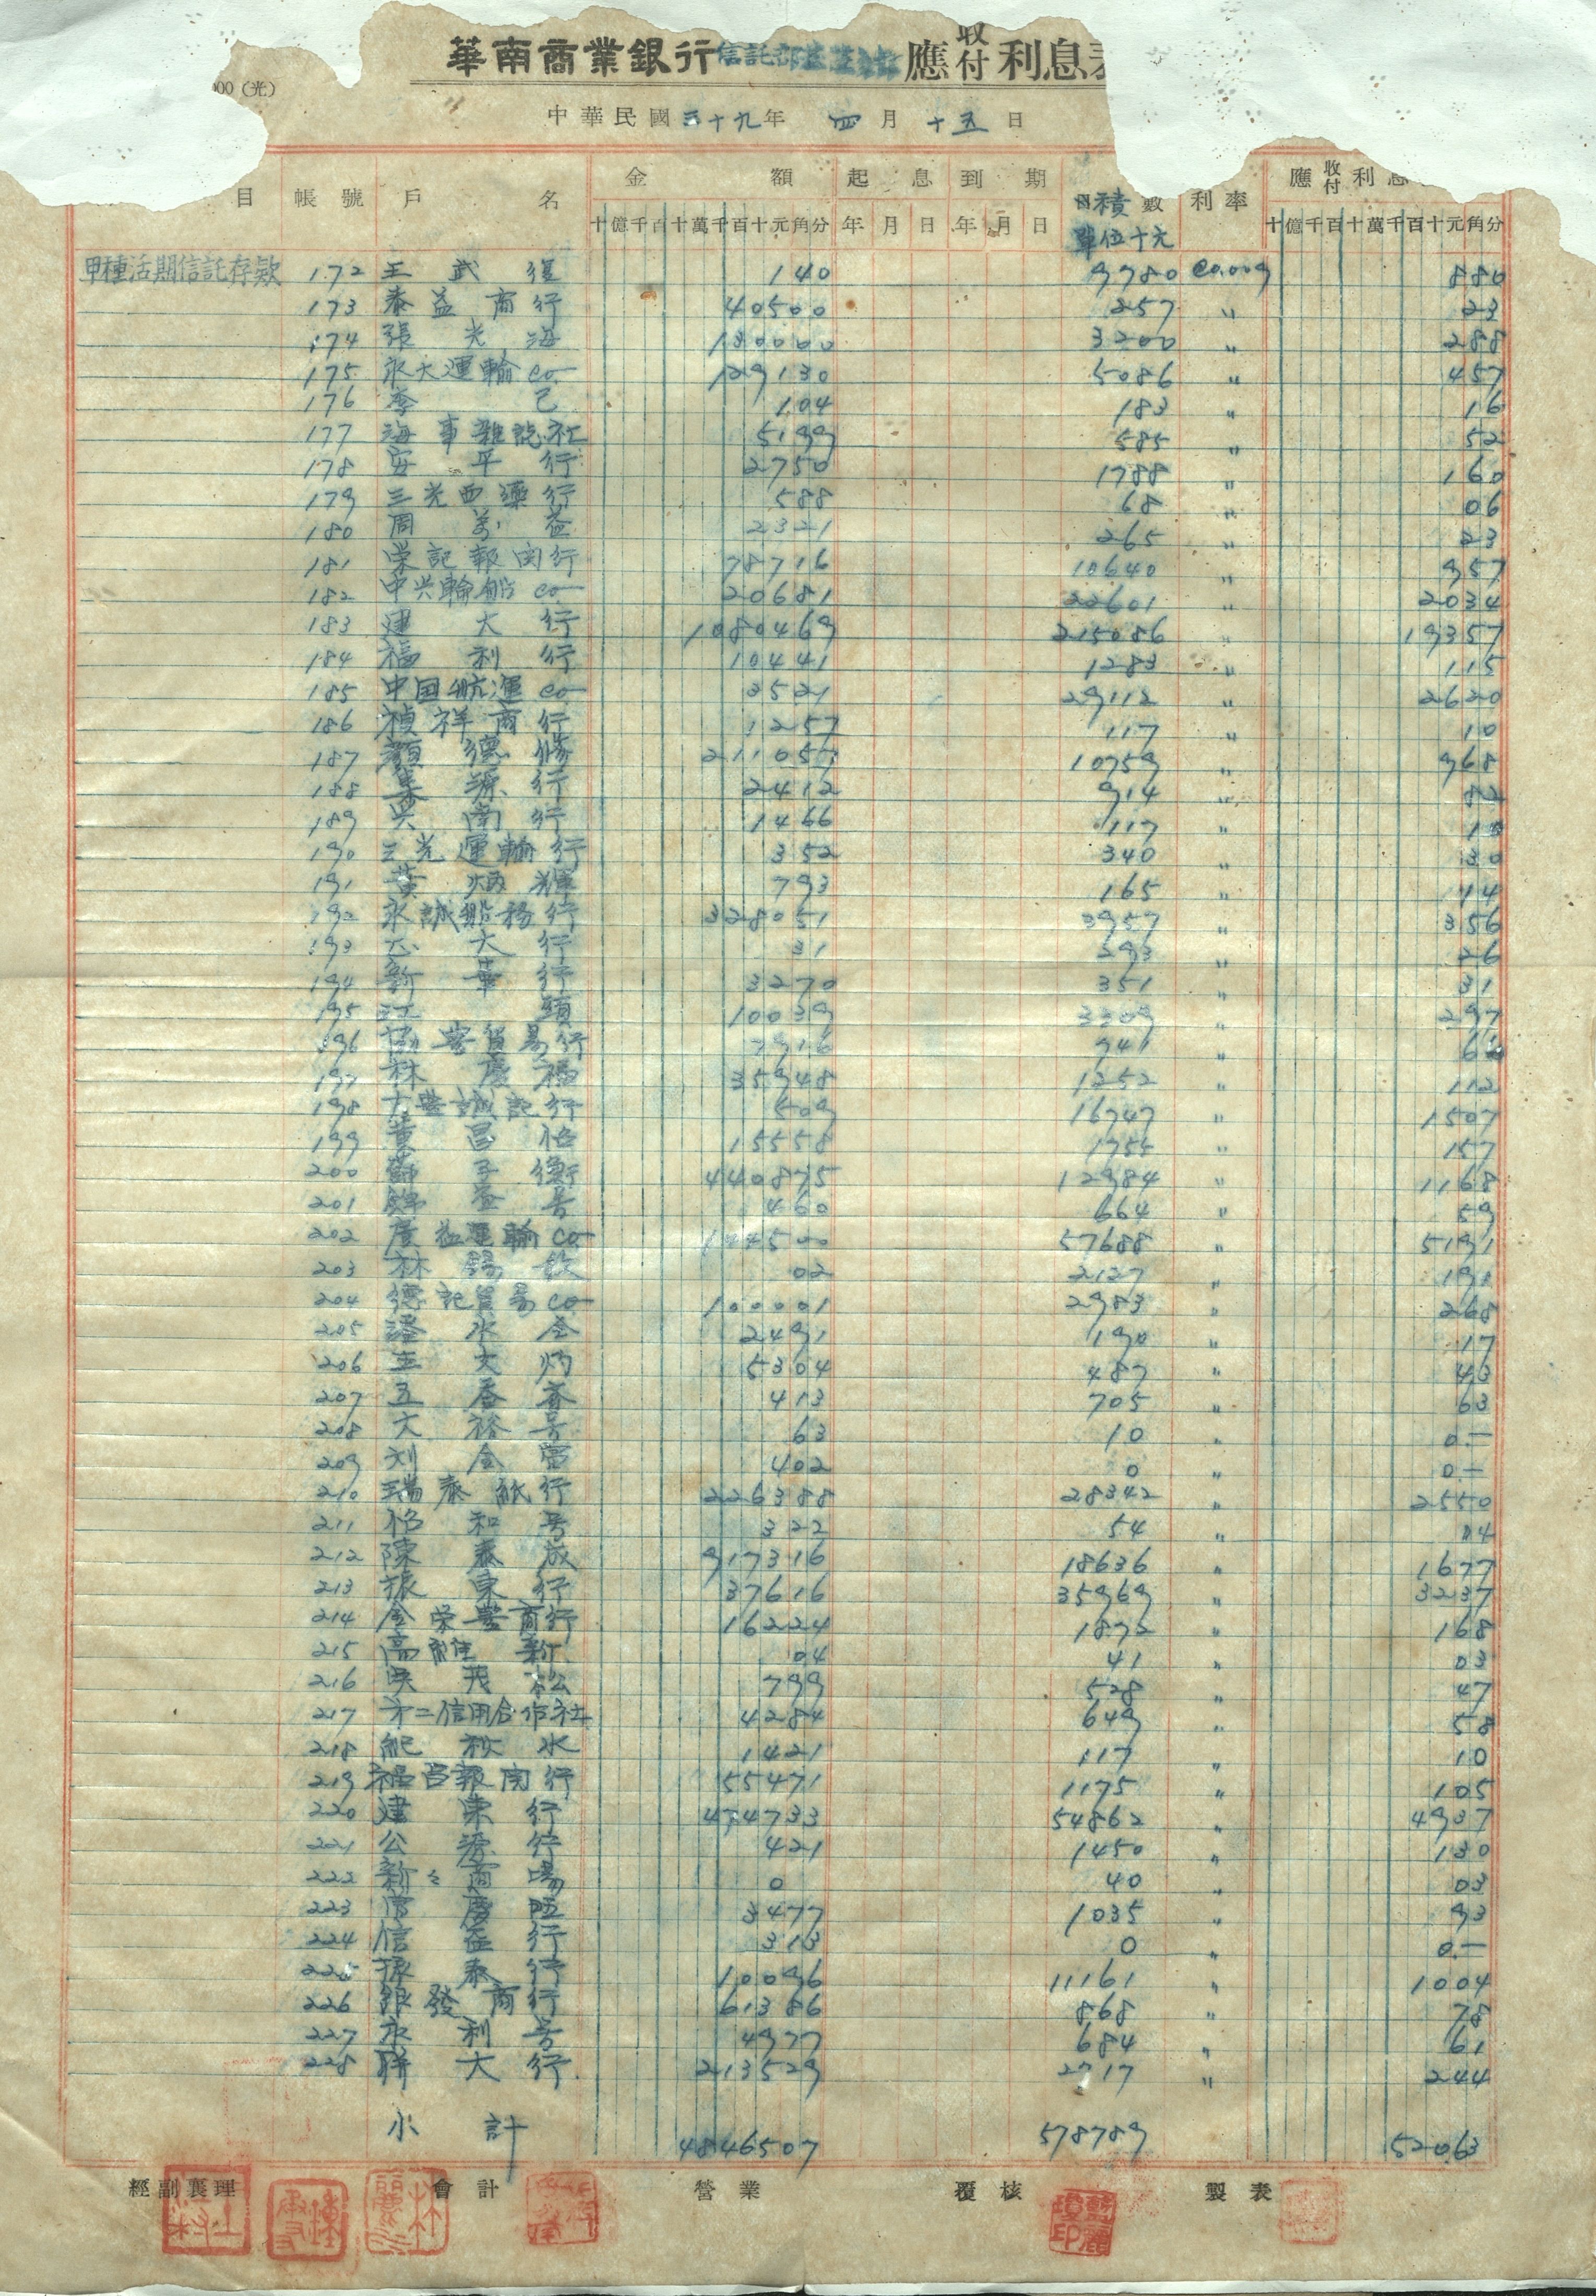 華南商業銀行信託部 應收付利息表
000 (光)
中華民國三十九年 四月 十五日
目 帳號 戶名 金額 起息 到期 日積數 利率 應收付利息
十億千百十萬千百十元角分 年月日 年月日 單位十元 十億千百十萬千百十元角分
甲種活期信託存款 172 王武復 140 9780 @0.009 880
173 泰益商行 40500 257 〃 23
174 張光海 130000 3200 〃 288
175 永大運輸co 129130 5086 〃 457
176 李己 104 183 〃 16
177 海事雜誌社 5199 585 〃 52
178 安平行 2750 1788 〃 160
179 三光西藥行 588 68 〃 06
180 周益 2321 265 〃 23
181 榮記報関行 78716 10640 〃 957
182 中兴輪船co 20681 22601 〃 2034
183 建大行 1080469 215086 〃 19357
184 福利行 10441 1283 〃 115
185 中国航運co 3521 29112 〃 2620
186 禎祥商行 1257 117 〃 10
187 顏德修 211055 10759 〃 968
188 集源行 2412 914 〃 82
189 兴南行 1466 117 〃 10
190 三光運輸行 352 340 〃 30
191 黃炳輝 793 165 〃 14
192 永誠船務行 328051 3957 〃 356
193 大行 31 293 〃 26
194 新華行 3270 351 〃 31
195 江頭 10039 3309 〃 297
196 協豊貿易行 7916 741 〃 66
197 林慶福 35948 1252 〃 112
198 大豊誠記行 509 16747 〃 1507
199 黃昌 15558 1755 〃 157
200 蘇子衡 440875 12984 〃 1168
201 錦益号 460 664 〃 59
202 廣益運輸co 144500 57688 〃 5191
203 林錫欽 02 2127 〃 191
204 德記貿易co 100001 2983 〃 268
205 水金 2491 190 〃 17
206 王文灼 5304 487 〃 43
207 五香齋 413 705 〃 63
208 大裕号 63 10 〃 0.—
209 刘金富 402 0 〃 0.—
210 瑞泰紙行 226388 28342 〃 2550
211 裕和号 322 54 〃 04
212 陳泰成 917316 18636 〃 1677
213 振東行 37616 35969 〃 3237
214 金榮豊商行 16224 1872 〃 168
215 高維新 04 41 〃 03
216 吳茂松 799 528 〃 47
217 才二信用合作社 4284 649 〃 58
218 紀秋水 1421 117 〃 10
219 福昌報関行 55471 1175 〃 105
220 建東行 474733 54862 〃 4937
221 公源行 421 1450 〃 130
222 新々商場 0 40 〃 03
223 慶 3477 1035 〃 93
224 信益行 313 0 〃 0.—
225 振泰行 10096 11161 〃 1004
226 銀發商行 61386 868 〃 78
227 永利号 4977 684 〃 61
228 聯大行 213529 2717 〃 244
小計 4846507 578789 52063
經副襄理 會計 營業 覆核 製表